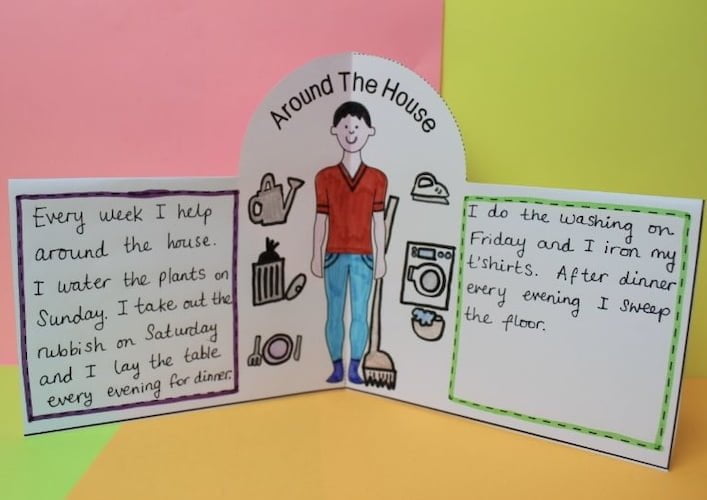 Around The House
Every week I help
around the house.
I water the plants on
Sunday. I take out the
rubbish on Saturday
and I lay the table
every evening for dinner.
I do the washing on
Friday and I iron my
t'shirts. After dinner
every evening I sweep
the floor.